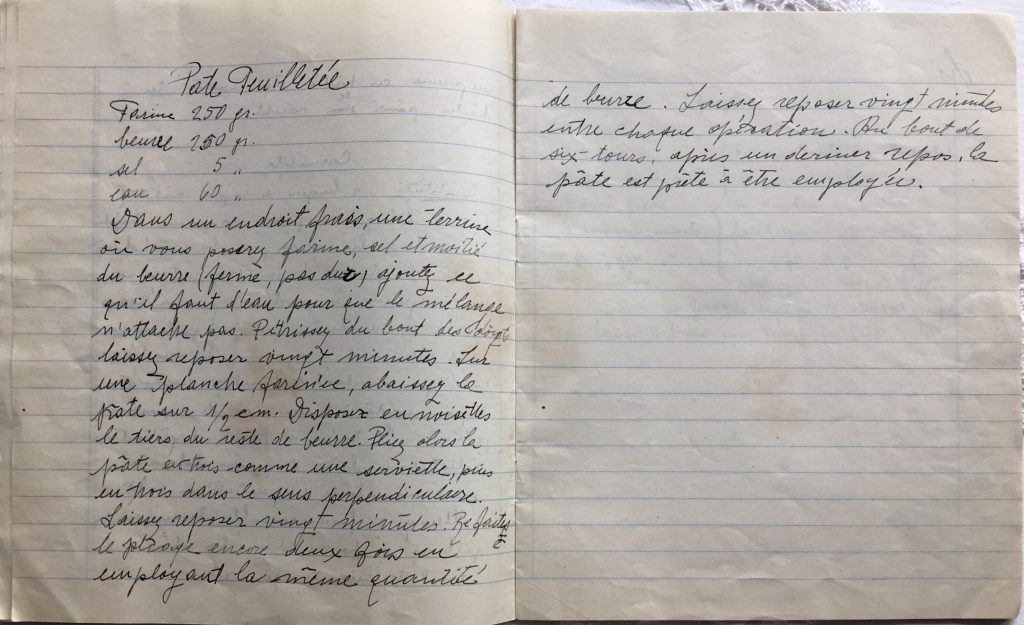 Pate Feuilletée
Farine 250 gr.
beurre 250 gr.
sel 5 "
eau 60 "
Dans un endroit frais, une terrine
où vous poserez farine, sel et moitié
du beurre (ferme, pas dur) ajoutez ce
qu'il faut d'eau pour que le mélange
n'attache pas. Pétrissez du bout des doigts
laissez reposer vingt minutes. Sur
une planche farinée, abaissez la
pâte sur 1/2 cm. Disposez en noisettes
le tiers du reste de beurre. Pliez alors la
pâte en trois comme une serviette, puis
en trois dans le sens perpendiculaire.
Laissez reposer vingt minutes. Refaites
le pliage encore deux fois en
employant la même quantité
de beurre. Laissez reposer vingt minutes
entre chaque opération. Au bout de
six tours, après un dernier repos, la
pâte est prête à être employée.